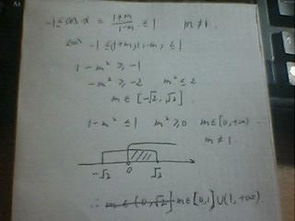 -1 ≤ cos x = (1+m)/(1-m) ≤ 1   m ≠ 1
-1 ≤ (1+m)(1-m) ≤ 1
1 - m² ≥ -1
-m² ≥ -2   m² ≤ 2
m ∈ [-√2, √2]
1 - m² ≤ 1   m² ≥ 0   m ∈ [0, +∞)
m ≠ 1
-√2   0   √2
∴ m ∈ [0, √2] m ∈ [0, 1] ∪ (1, +∞)